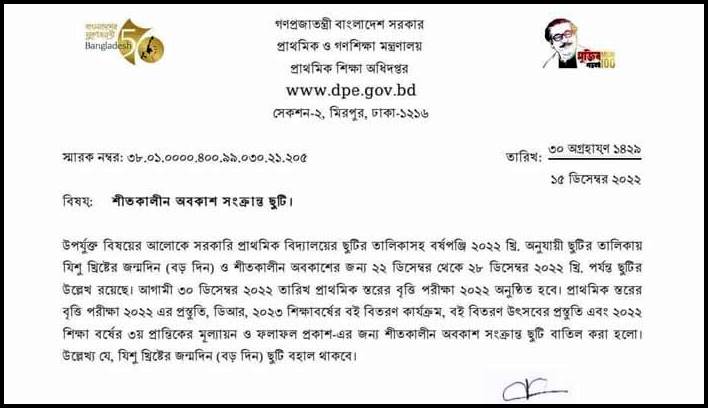 গণপ্রজাতন্ত্রী বাংলাদেশ সরকার
প্রাথমিক ও গণশিক্ষা মন্ত্রণালয়
প্রাথমিক শিক্ষা অধিদপ্তর
www.dpe.gov.bd
সেকশন-২, মিরপুর, ঢাকা-১২১৬
Bangladesh 50
মুজিব শতবর্ষ 100
স্মারক নম্বর: ৩৮.০১.০০০০.৪০০.৯৯.০৩০.২১.২০৫
তারিখ: ৩০ অগ্রহায়ণ ১৪২৯
১৫ ডিসেম্বর ২০২২
বিষয়: শীতকালীন অবকাশ সংক্রান্ত ছুটি।
উপর্যুক্ত বিষয়ের আলোকে সরকারি প্রাথমিক বিদ্যালয়ের ছুটির তালিকাসহ বর্ষপঞ্জি ২০২২ খ্রি. অনুযায়ী ছুটির তালিকায়
যিশু খ্রিষ্টের জন্মদিন (বড় দিন) ও শীতকালীন অবকাশের জন্য ২২ ডিসেম্বর থেকে ২৮ ডিসেম্বর ২০২২ খ্রি. পর্যন্ত ছুটির
উল্লেখ রয়েছে। আগামী ৩০ ডিসেম্বর ২০২২ তারিখ প্রাথমিক স্তরের বৃত্তি পরীক্ষা ২০২২ অনুষ্ঠিত হবে। প্রাথমিক স্তরের
বৃত্তি পরীক্ষা ২০২২ এর প্রস্তুতি, ডিআর, ২০২৩ শিক্ষাবর্ষের বই বিতরণ কার্যক্রম, বই বিতরণ উৎসবের প্রস্তুতি এবং ২০২২
শিক্ষা বর্ষের ৩য় প্রান্তিকের মূল্যায়ন ও ফলাফল প্রকাশ-এর জন্য শীতকালীন অবকাশ সংক্রান্ত ছুটি বাতিল করা হলো।
উল্লেখ্য যে, যিশু খ্রিষ্টের জন্মদিন (বড় দিন) ছুটি বহাল থাকবে।